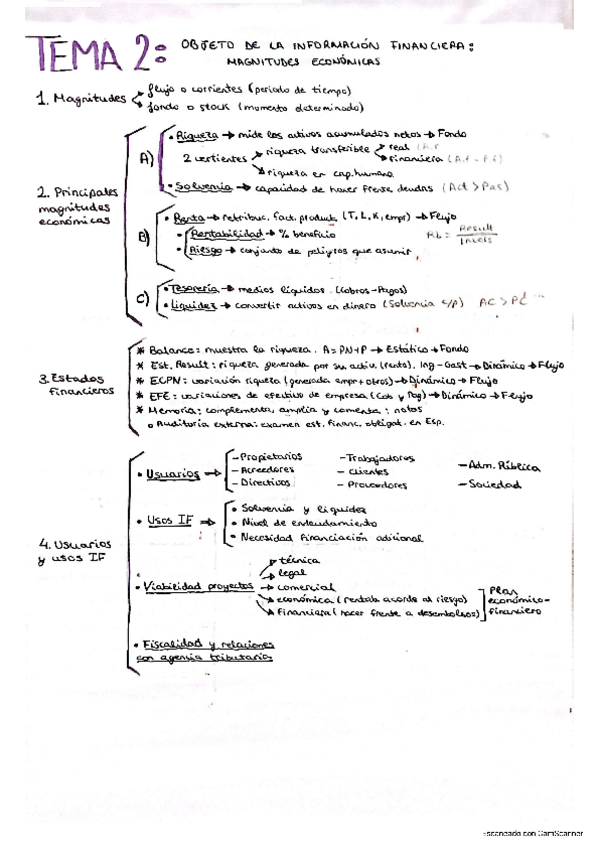 TEMA 2: OBJETO DE LA INFORMACIÓN FINANCIERA:
MAGNITUDES ECONÓMICAS
1. Magnitudes flujo o corrientes (periodo de tiempo)
fondo o stock (momento determinado)
2. Principales magnitudes económicas
A)
• Riqueza → mide los activos acumulados netos → Fondo
2 vertientes → riqueza transferible → real (A.r
→ financiera (A.f - P.f)
→ riqueza en cap. humano
• Solvencia → capacidad de hacer frente deudas (Act > Pas)
B)
• Renta → retribuc. fact. product. (T, L, K, empr) → Flujo
• Rentabilidad → % beneficio
Rb = Result / Invers
• Riesgo → conjunto de peligros que asumir
C)
• Tesorería → medios líquidos. (Cobros-Pagos)
• Liquidez → convertir activos en dinero (Solvencia c/p) AC > PC
3. Estados financieros
* Balance: muestra la riqueza. A = PN + P → Estático → Fondo
* Est. Result: riqueza generada por su activ. (renta). Ing - Gast → Dinámico → Flujo
* ECPN: variación riqueza (generada empr + otros) → Dinámico → Flujo
* EFE: variaciones de efectivo de empresa (Cob y Pag) → Dinámico → Flujo
* Memoria: complementa, amplia y comenta: notas
o Auditoría externa: examen est. financ. obligat. en Esp.
4. Usuarios y usos IF
• Usuarios ⇒
- Propietarios - Trabajadores - Adm. Pública
- Acreedores - Clientes
- Directivos - Proveedores - Sociedad
• Usos IF ⇒
• Solvencia y liquidez
• Nivel de endeudamiento
• Necesidad financiación adicional
• Viabilidad proyectos
→ técnica
→ legal
→ comercial
→ económica (rentab. acorde al riesgo)
→ financiera (hacer frente a desembolsos)
Plan económico-financiero
• Fiscalidad y relaciones
con agencia tributaria
Escaneado con CamScanner